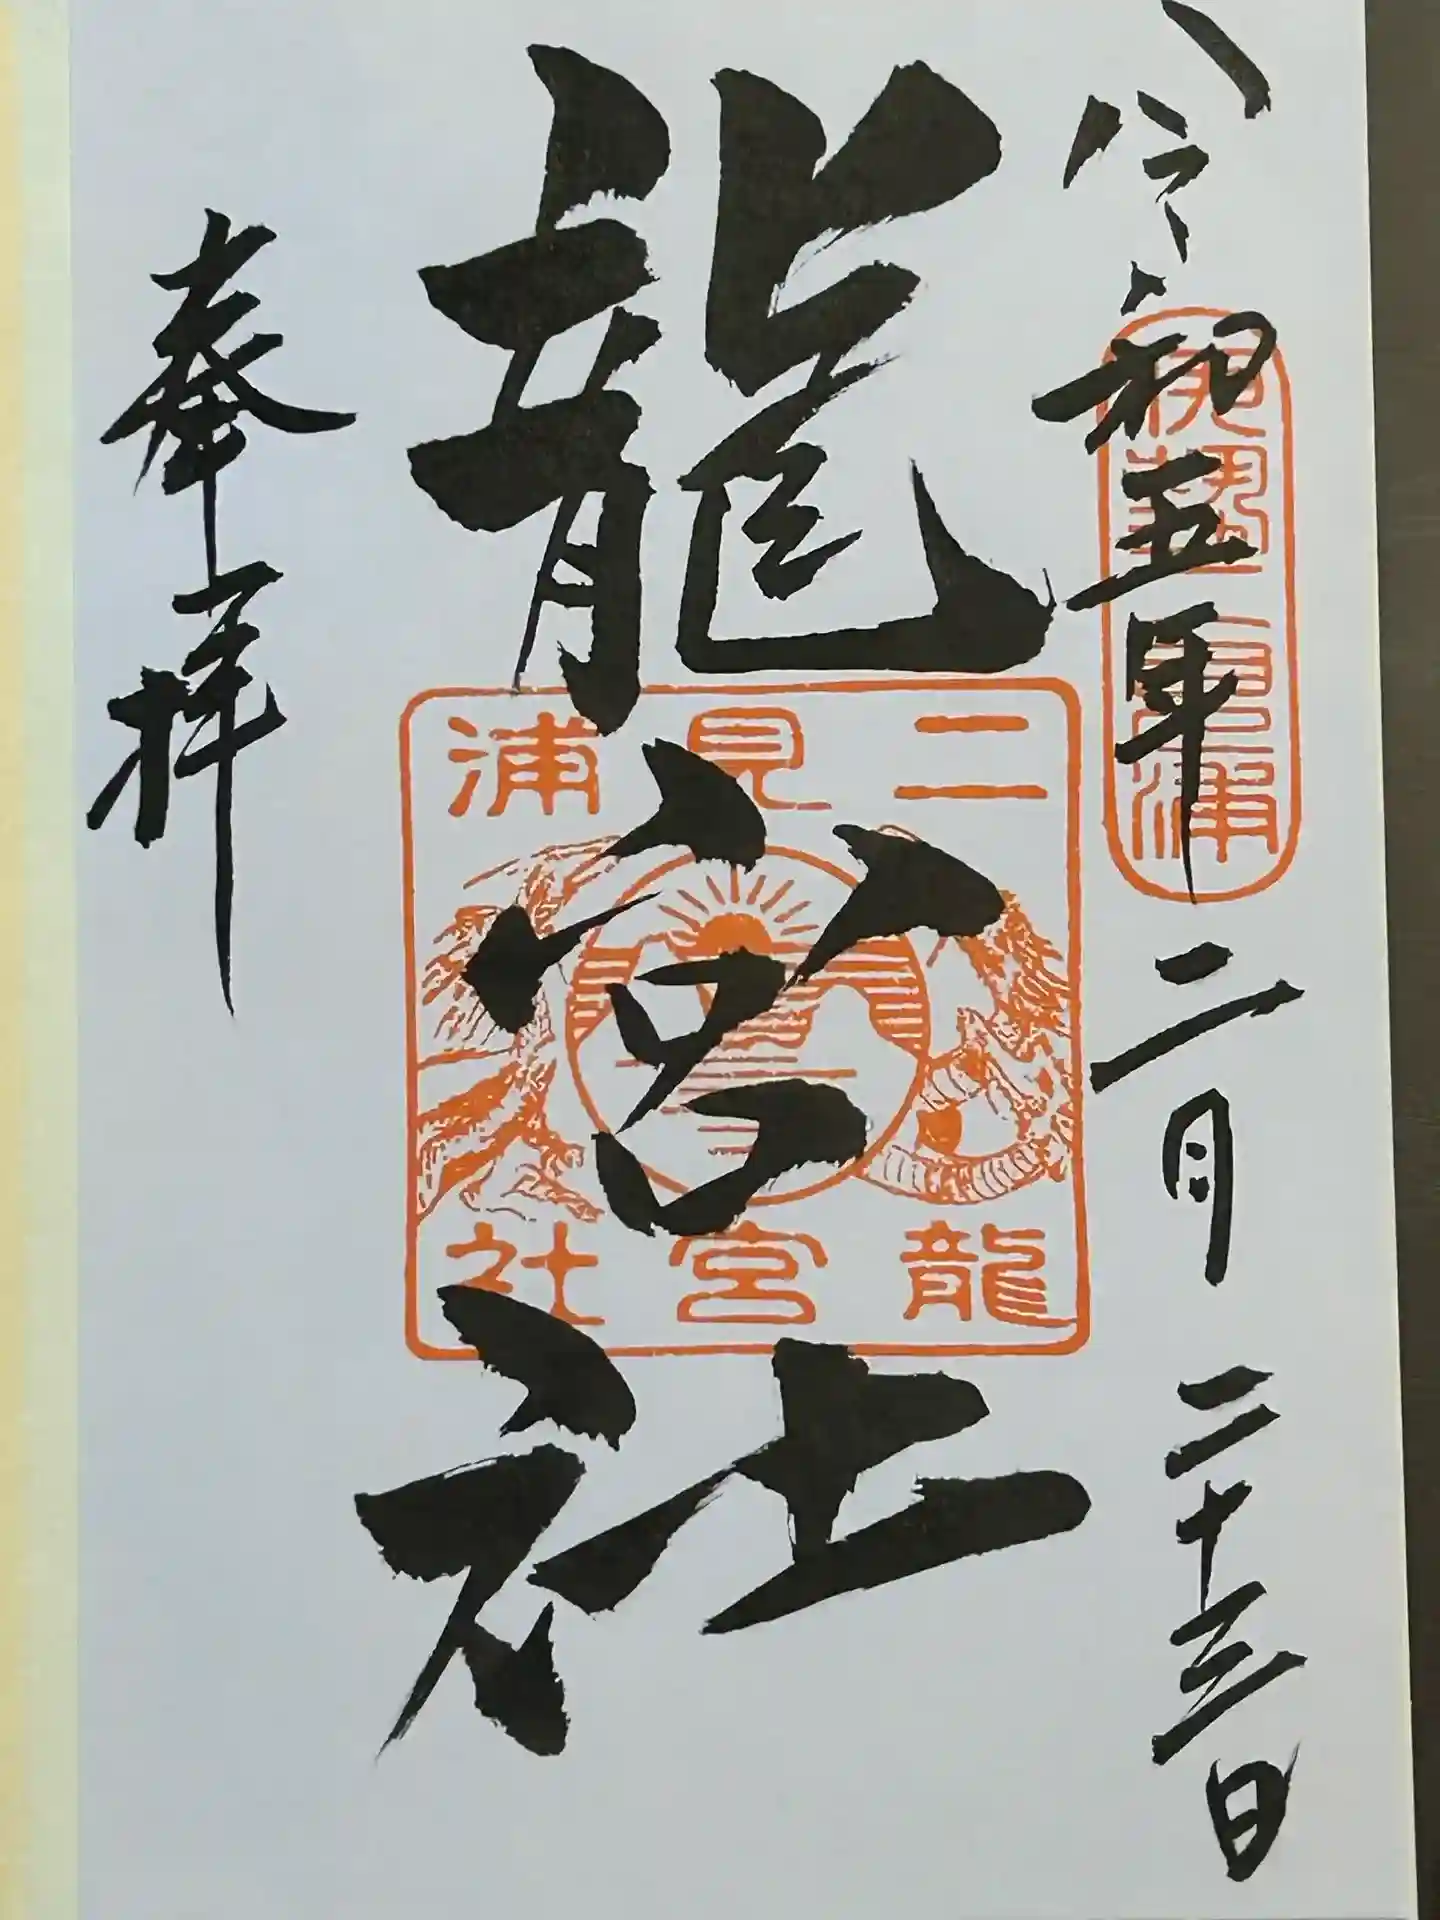 令和五年二月二十三日
伊勢二見浦
龍宮社
二見浦
龍宮社
奉拝